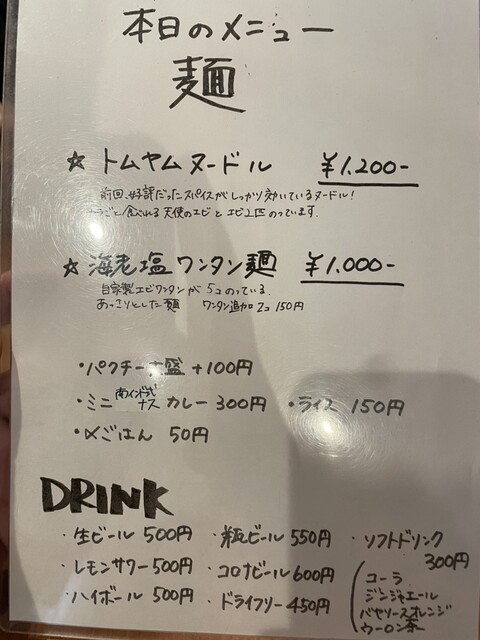 本日のメニュー
麺
☆ トムヤムヌードル ¥1,200-
前回、好評だったスパイスがしっかり効いているヌードル!
食べれる天使のエビとエビ2匹のっています.
☆ 海老塩ワンタン麺 ¥1,000-
自家製エビワンタンが5コのっている.
あっさりとした麺 ワンタン追加2コ150円
・パクチー大盛 +100円
・ミニ南インド式ナスカレー 300円 ・ライス 150円
・〆ごはん 50円
DRINK
・生ビール 500円 ・瓶ビール 550円 ・ソフトドリンク 300円
・レモンサワー 500円 ・コロナビール 600円
・ハイボール 500円 ・ドライフリー 450円
コーラ
ジンジャエール
バヤリースオレンジ
ウーロン茶